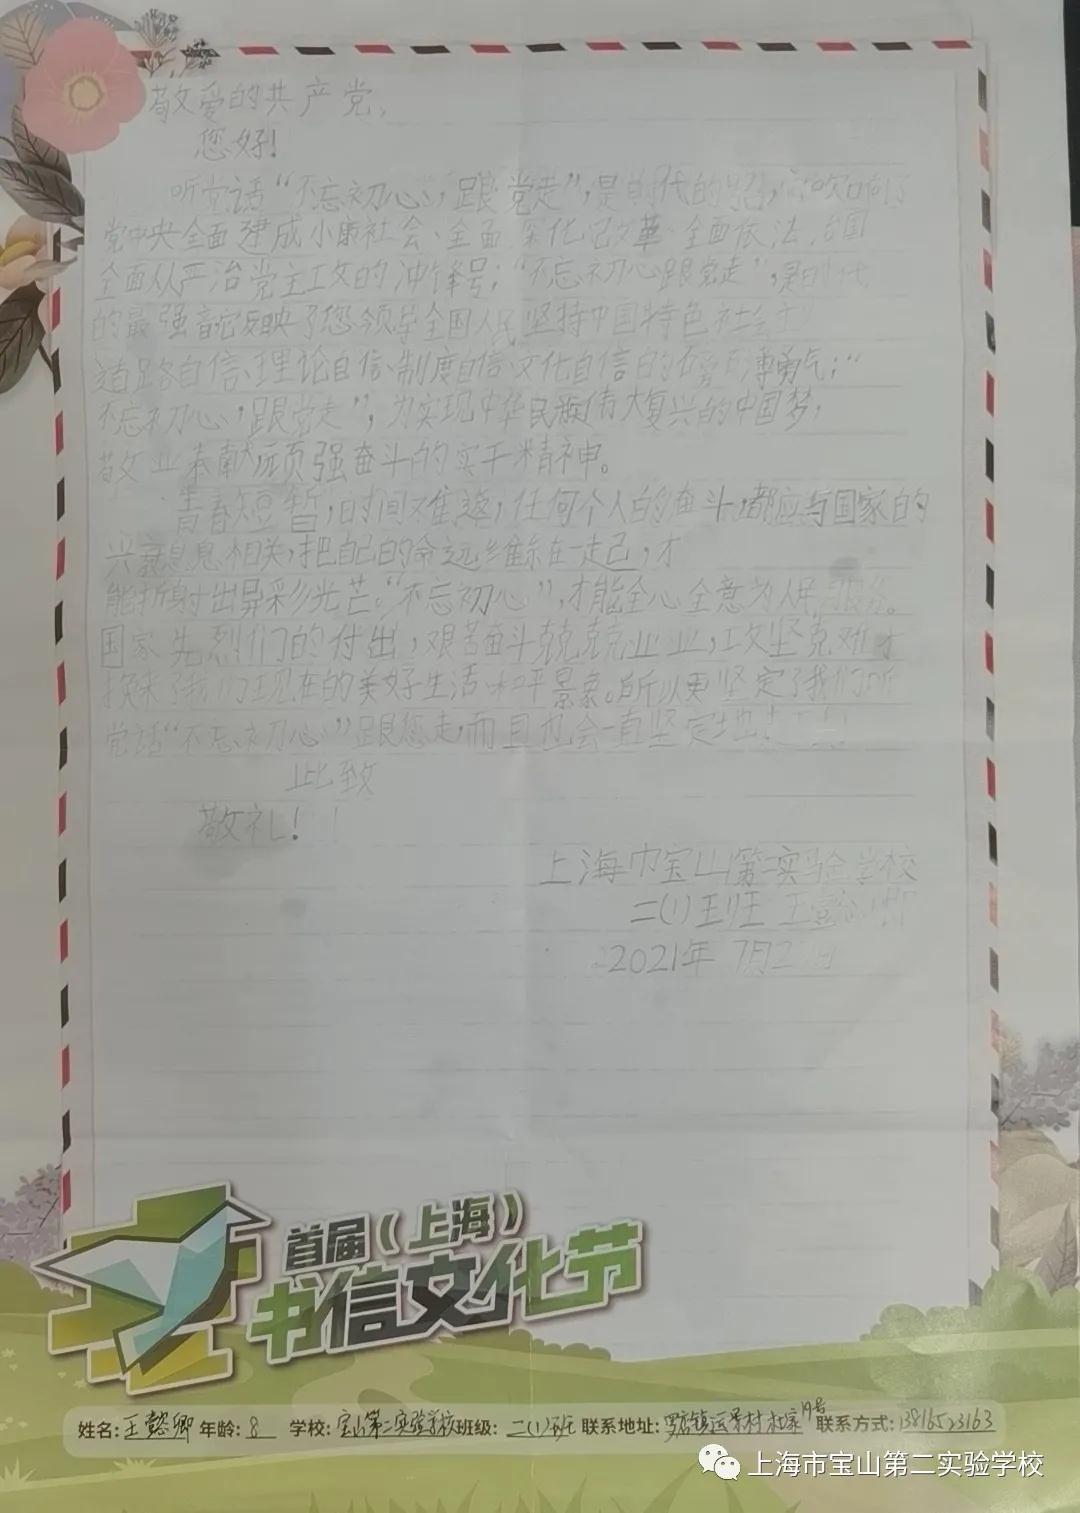 敬爱的共产党,
您好!
听党话“不忘初心,跟党走”,是时代的号,吹响了
党中央全面建成小康社会、全面深化改革、全面依法治国
全面从严治党主攻的冲锋号;“不忘初心跟党走”,是时代
的最强音它反映了您领导全国人民坚持中国特色社会主
道路自信、理论自信、制度自信、文化自信的勇气;“
不忘初心,跟党走”,为实现中华民族伟大复兴的中国梦,
敬业奉献顽强奋斗的实干精神。
青春短暂,时间难返,任何个人的奋斗,都应与国家的
兴衰息息相关,把自己的命运维系在一起,才
能折射出异彩光芒。“不忘初心”,才能全心全意为人民服务。
国家先烈们的付出,艰苦奋斗兢兢业业,攻坚克难才
换来了我们现在的美好生活和平景象。所以更坚定了我们听
党话“不忘初心”跟您走,而且也会一直坚定地走
此致
敬礼!
上海市宝山第二实验学校
二(1)班 王懿卿
2021年7月2日
首届(上海)
书信文化节
姓名:王懿卿 年龄:8 学校:宝山第二实验学校 班级:二(1)班 联系地址:罗店镇远景村 19号 联系方式:13816523163
上海市宝山第二实验学校